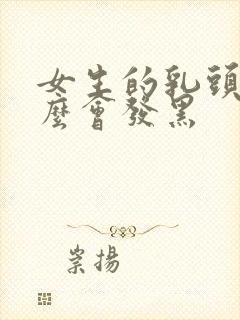 女生的乳頭
麼會發黑
崇揚